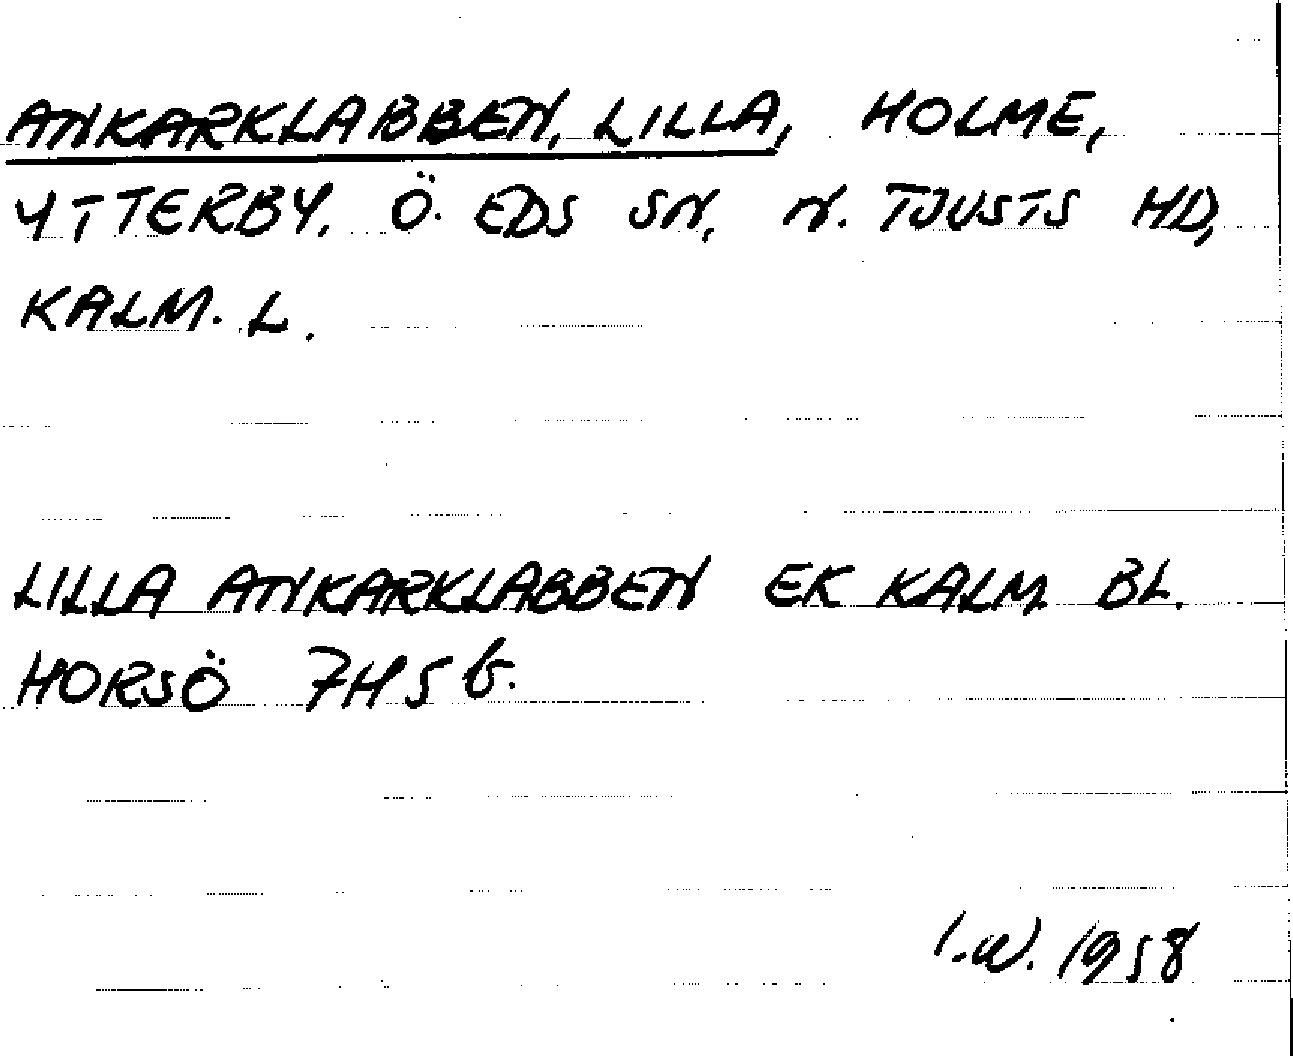 ANKARKLABBEN, LILLA, HOLME,
YTTERBY. Ö. EDS SN, N. TJUSTS HD,
KALM. L.
LILLA ANKARKLABBEN EK KALM BL.
HORSÖ 7H5b.
I.W. 1958